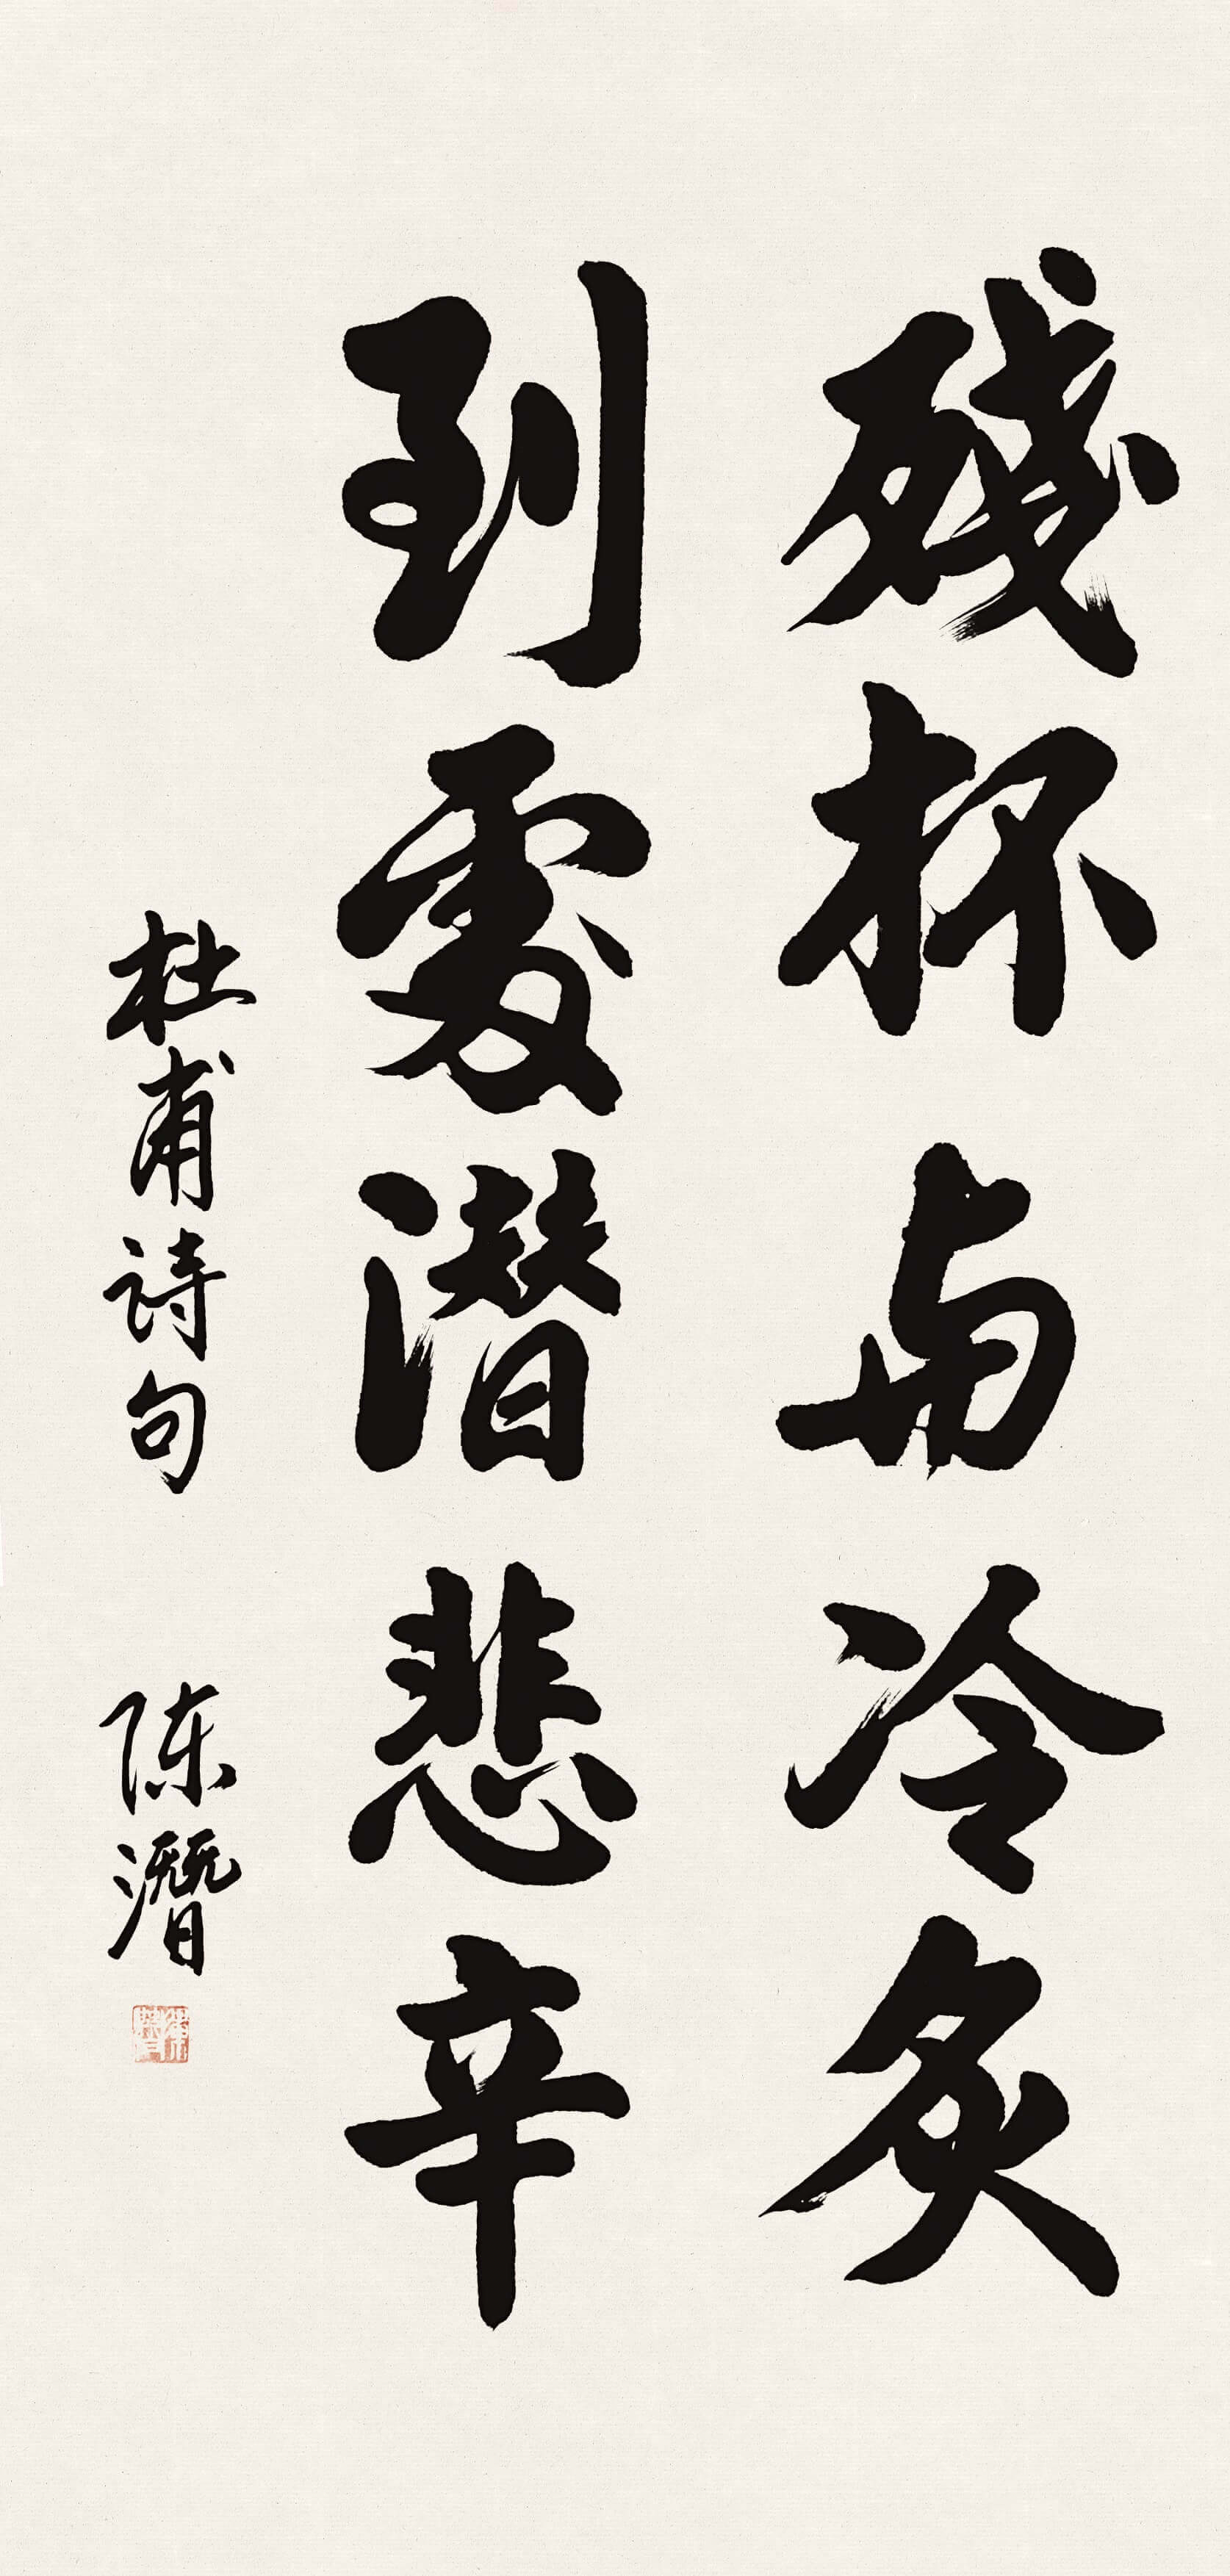 残杯与冷炙
到處潜悲辛
杜甫诗句 陈潛